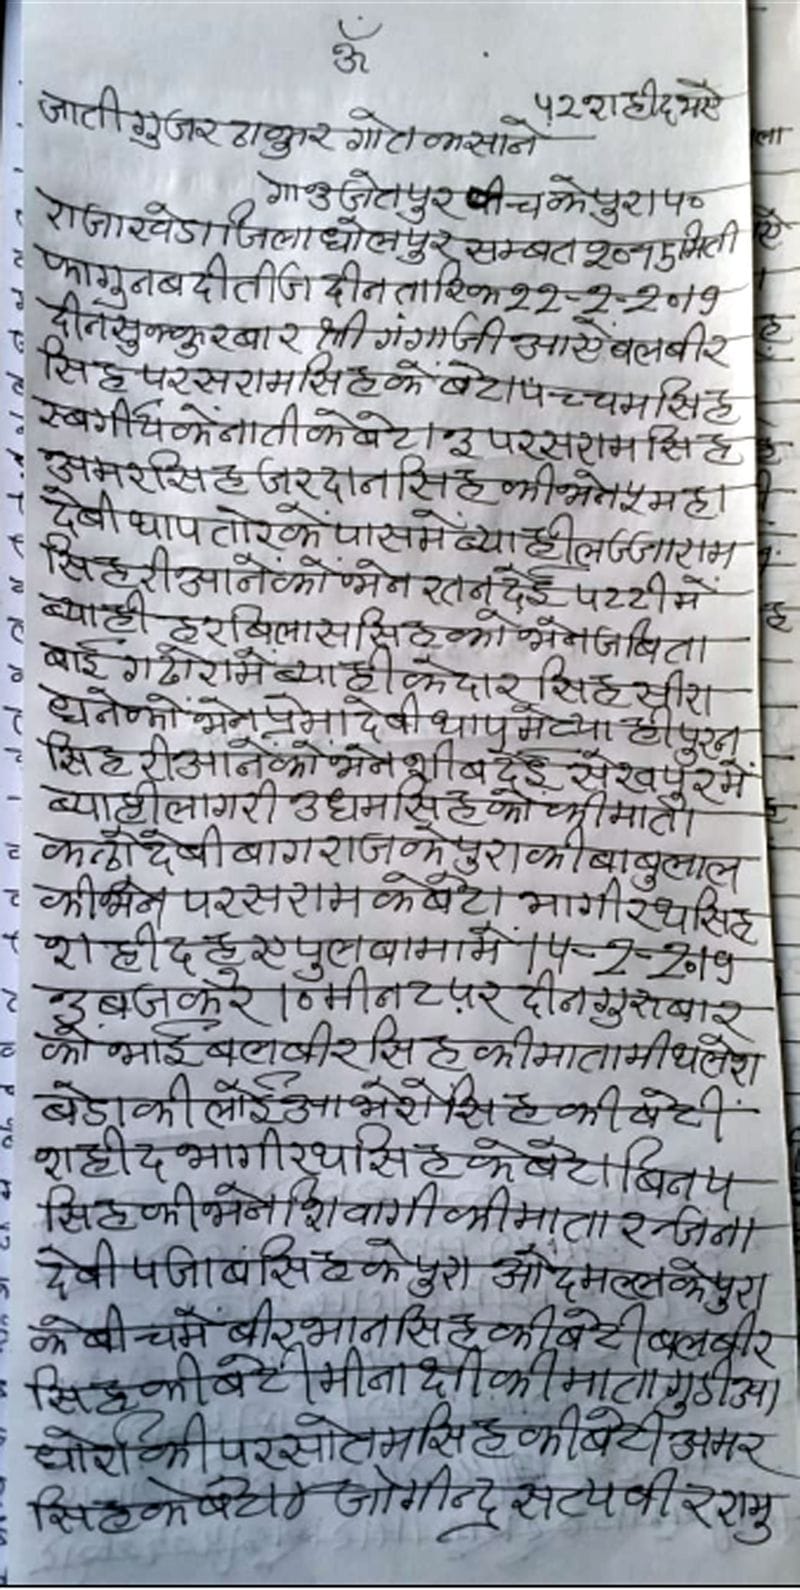 ॐ
५२ शहीद भऐ
जाती गुजर ठाकुर गोत कसाने
गाउ जेतपुर बीच के पुरा प०
राजाखेडा जिला धोलपुर सम्बत २०७५ मिती
फागुन बदी तीज दीन तारिक 22-2-2019
दीन सुक्कुरबार श्री गंगाजी आऐं बलबीर
सिह परसराम सिह के बेटा पच्चम सिह
स्बर्गीय के नाती के बेटा ३ परसराम सिह
अमर सिह जरदान सिह की भेन ५ महा
देबी थाप तोर के पास में ब्याही लज्जाराम
सिह रीआने को भेन रतन देई पटटी में
ब्याही हरबिलास सिह को भेन जबिता
बाई गढोरा में ब्याही केदार सिह खीरा
धने को भेन प्रेमा देबी थापु में ब्याही पुरन
सिह रीआने को भेन शीब देई सेखपुर में
ब्याही लागरी उधम सिह को की माता
कलो देबी बागराज के पुरा की बाबुलाल
की भेन परसराम के बेटा भागीरथ सिह
शहीद हुऐ पुलबामा में 14-2-2019
३ बजकर १० मीनट पर दीन गुरुबार
को भाई बलबीर सिह की माता मीथलेश
बेडा की लोई आ भेरो सिह की बेटी
शहीद भागीरथ सिह के बेटा बिनय
सिह की भेन शिवागी की माता रन्जना
देबी पजाब सिह के पुरा ओदमल्ल के पुरा
के बीच में बीरभान सिह की बेटी बलबीर
सिह की बेटी मीनाक्षी की माता गुडीआ
धोरा की परसोतम सिह की बेटी अमर
सिह के बेटा ४ जोगीन्द्र सत्यबीर रामु